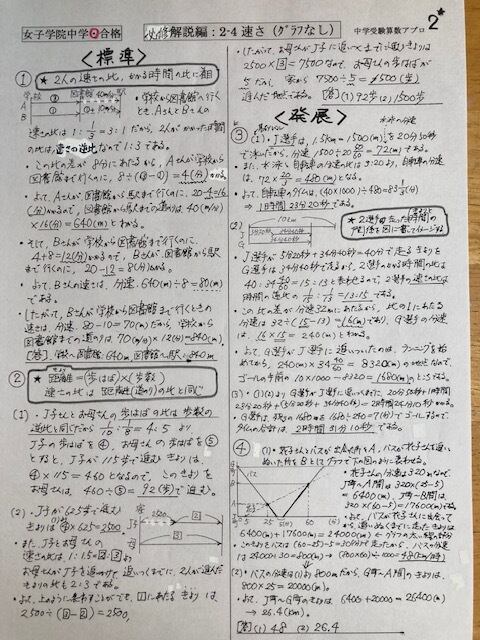 女子学院中学◎合格
必修解説編：2-4 速さ（グラフなし）
中学受験算数アプロ
2
＜標準＞
① ★2人の速さの比、かかる時間の比に着目
学校 図書館 40m/分 駅
・学校から図書館へ行くとき、Aさんと Bさんの
速さの比は 1：1/3＝3：1だから、2人がかかった時間
の比は、速さの逆比なので1：3である。
・この比の差が 8分にあたるから、Aさんが学校から
図書館まで行くのに、8÷(③-①)＝4(分)かかる。
・よって、Aさんが、図書館から駅まで行くのに、20-4＝16
(分)かかるので、図書館から駅までの道のりは、40(m/分)
×16(分)＝640(m)とわかる。
・そして、Bさんが学校から図書館まで行くのに、
4+8＝12(分)かかるので、Bさんが、図書館から駅
まで行くのに、20-12＝8(分)かかる。
・よって、Bさんの速さは、分速、640(m)÷8＝80(m)
である。
・したがって、Bさんが学校から図書館まで行くときの
速さは、分速、80-10＝70(m)だから、学校から
図書館までの道のりは、70(m/分)×12(分)＝840(m)。
[答] 学校〜図書館 840m
② ★距離＝(歩はば)×(歩数)
速さの比は、同じ時間に進む距離(道のり)の比と同じ
(1)・J子さんとお母さんの歩はばの比は 歩数の
逆比と同じだから
4：5 より
J子の歩はばを④、お母さんの歩はばを⑤
とすると、J子が 115歩で進むきょりは
④×115＝460となるので、このきょりを
お母さんは、460÷⑤＝92(歩)で進む。
(2)・J子が(625歩で進む)
きょりは④×625＝2500
・また、J子とお母さんの
速さの比は、1：1.5＝2：3より
お母さんが J子を追いかけて、追いつくまでに、2人が進んだ
きょりの比も 2：3である。
・よって、上のように表すことができ、1にあたるきょりは
2500÷(3-2)＝2500。
・したがって、お母さんが J子に追いつくまでに進むきょりは
2500×3＝7500なので、お母さんの歩はばが
⑤だし、家から 7500÷5＝1500(歩)
進んだ地点である。 [答](1) 92歩 (2) 1500歩
＜発展＞
③ (1)・J選手は、1.5km＝1500(m)を20分50秒
で泳いだから、分速、1500÷20 50/60＝72(m)である。
・また、水泳と自転車の分速の比は 3：20より、自転車の分速
は、72×20/3＝480(m)となる。
・よって、自転車のタイムは、(40×1000)÷480＝83 1/3(分)
→ 1時間23分20秒である。
(2) 10km
5分20秒 34分40秒
34分40秒
★2選手の走った時間の関係を図に書いてイメージする
・J選手が 5分20秒+34分40秒＝40分で走るきょりを
G選手は 34分40秒で走るから、2選手のかかる時間の比は
40：34 40/60＝15：13と表わせるので、2選手の速さの比は
時間の逆比の 1/15：1/13＝13：15である。
・この比の差が分速32mにあたるから、比の1にあたる
分速は 32÷(15-13)＝16(m)であり、G選手の分速
は、16×15＝240(m)とわかる。
・よって、G選手が J選手に追いついたのは、ランニングを始
めてから、240(m)×34 40/60＝8320(m)の地点なので、
ゴールの手前の 10×1000-8320＝1680(m)のところである。
(3)・(1)(2)より
・G選手は、残りの1680mを 1680÷240＝7(分)でゴールするので、
タイムの合計は、2時間31分10秒である。
④ (1)・花子さんとバスが出会った所をA、バスが花子さんを追い
ぬいた所をBとしてグラフで下の図のように表わせる。
5 25 60
・花子さんの分速は320mなので、
J町〜A間は 320×(25-5)
＝6400(m)、J町〜B間は、
320×(60-5)＝17600(m)である。
・よって、バスが花子さんに出会って
から、追いぬくまでに走ったきょりは
6400(m)+17600(m)＝24000(m)
24000÷30＝800(m) → (800×60)÷1000＝48(km/時)
(2)・バスの分速は(1)より800mだから、G町〜A間のきょりは、
800×25＝20000(m)。
・よって、J町〜G町のきょりは、6400+20000＝26400(m)
→ 26.4(km)。
[答](1) 48 (2) 26.4